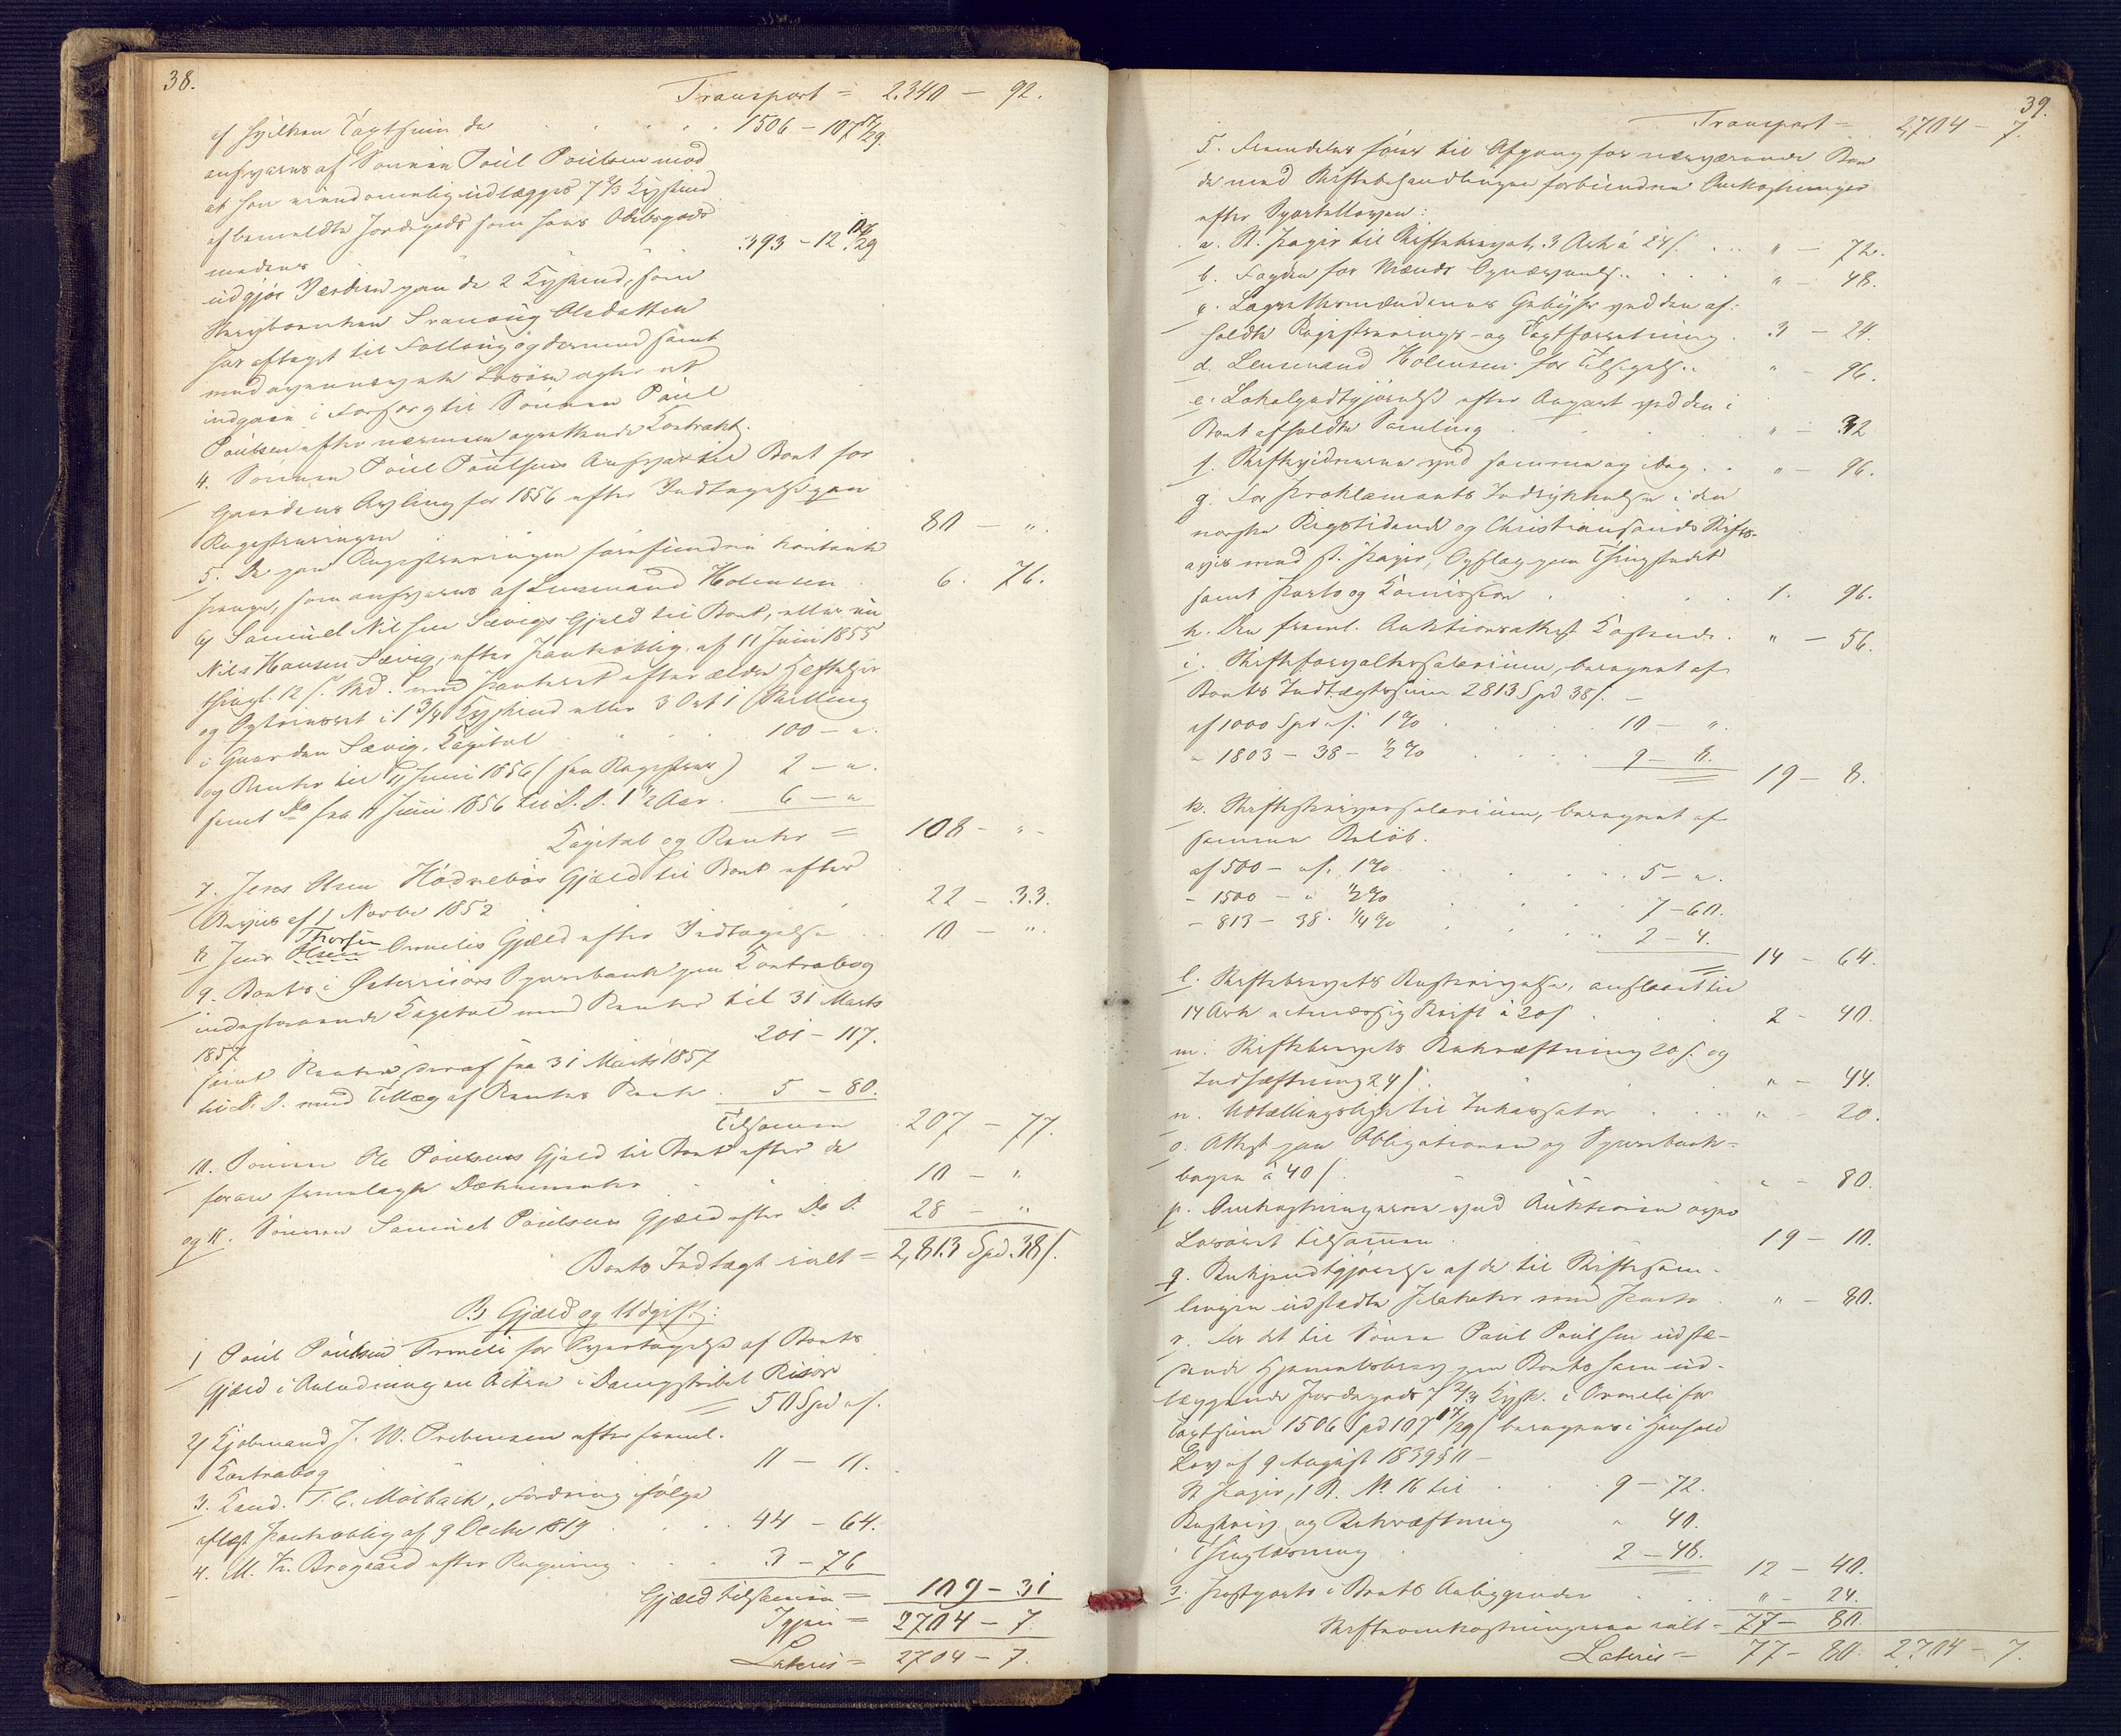 38.
Transport = 2.340 — 92.
af hvilken Taxtsum de . . . . 1506 – 107 17/29.
ansvares af Sønnen Poul Poulsen mod
at han eiendommelig udlægges 7 2/3 Kyshud
af bemeldte Jordegods som hans Odelsgods
medens . . . 393 – 12 12/29
udgjør Værdien paa de 2 Kyshud, som
Stervboenken Svanaug Olsdatter
har aftaget til Følloug og dermed samt
med ovennævnte Løsøre agter at
indgaae i Forsorg til Sønnen Poul
Poulsen efter nærmere oprettende Contrakt.
4. Sønnen Poul Poulsens Ansvar til Boet for
Gaardens Avling for 1856 efter Vedtagelse paa
Registreringen . . 80 — „.
5. De paa Registreringen forefundne kontante
Penge, som ansvares af Lensmand Holmsen . 6. 76.
6) Samuel Nilssen Sævigs Gjæld til Boet, eller nu
Nils Hansen Sævig, efter Pantoblig. af 11 Juni 1855
thingl. 12 s. Md. med Panteret efter ældre Heftelser
og Opteisret i 1 3/4 Kyshud eller 3 Ort 1 Skilling
i Gaarden Sævig, Kapital . „ . . 100 – „.
og Renter til 11 Juni 1856 (fra Registrer) 2 – „.
samt Do fra 11 Juni 1856 til D. D. 1 1/2 Aar . 6 – „
Kapital og Renter = 108 – „ –
7. Jens Olsen Hödnebös Gjæld til Boet efter
Beviis af 1 Novbr 1852 . 22 – 33.
8 Jens Olsen Thorsen Ormelis Gjæld efter Vedtagelse . . 10 — „.
9. Boets i Østerriisørs Sparebank paa Contrabog
indestaaende Kapital med Renter til 31 Marts
1857. 201 – 117.
samt Renter deraf fra 31 Marts 1857
til D. D. med Tillæg af Renters Rente . 5 – 80.
Tilsammen 207 — 77.
10. Sønnen Ole Poulsens Gjæld til Boet efter de
foran fremlagte Dokumenter . 10 – „
og 11. Sønnen Samuel Poulsens Gjæld efter Do D. 28 – „
Boets Indtægt ialt = 2,813 Spd. 38 s.
B) Gjæld og Udgift:
1 Poul Poulsen Ormeli for Overtagelse af Boets
Gjæld i Anledning en Actie i Dampskibet Risør
= 50 Spd „s.
2) Kjøbmand J. W. Prebensen efter freml.
Contrabog . . 11 – 11.
3. Cand. T. C. Mölbach, Fordring ifølge
aflæst Pantoblig af 9 Decbr 1819 . . . 44 – 64.
4. M. Kr. Brogaard efter Regning . . . 3 – 76
Gjæld tilsammen = 109 – 31
Igjen = 2704 – 7.
Lateris = 2704 – 7.
39.
Transport = 2,704 – 7.
5. Fremdeles føres til Afgang for nærværende Bo
de med Skiftebehandlingen forbundne Omkostninger
efter Sportelloven:
a. St. Papir til Skiftebrevet, 3 Ark á 24 s. . . „ – 72.
b. Fogden for Mænds Opnævnelse . . . „ – 48.
c. Lagrettesmændenes Gebyhr ved den af-
holdte Registrerings- og Taxtforretning . 3 – 24.
d. Lensmand Holmsen for Tilsigelse . „ – 96.
e. Lokalgodtgjørelse efter Anpart ved den i
Boet afholdte Samling . . „ – 32
f. Skiftevidnerne ved samme og idag . . „ – 96.
g. For Proklamaets Indrykkelse i den
norske Rigstidende og Christiansands Stifts-
avis med st. Papir, Opslag paa Thingstedet
samt Porto og Comission . . . 1. 96.
h. Den freml. Auktionsattest Kostende . „ – 56.
i. Skifteforvaltersalarium, beregnet af
Boets Indtægtssum 2813 Spd 38 s. –
af 1000 Spd „s. 1 % . . 10 – „.
„ 1803 – 38 – 1/2 % . . . 9 – 8.
19 – 8.
k. Skifteskriversalarium, beregnet af
samme Beløb.
af 500 – „s. 1 % . . . 5 – „.
– 1500 – „ 1/2 % . . 7 – 60.
– 813 – 38. 1/4 % . . . 2 – 4.
14 – 64.
l. Skiftebrevets Beskrivelse, anslaaet til
14 Ark actmæssig Skrift à 20 s . . . 2 – 40.
m. Skiftebrevets Bekræftning 20 s. og
Indhæftning 24 s. . . „ – 44.
n. Udtællingsliste til Inkassator . . . „ – 20.
o. Attest paa Obligationen og Sparebank-
bogen à 40 s. . . „ – 80.
p. Omkostningerne ved Auktionen over
Løsøret tilsammen . 19 – 10.
q. Bekjendtgjørelse af de til Skiftesam-
lingen udstedte Plakater med Porto . „ – 80.
r. For det til Sønnen Poul Poulsen udste-
dende Hjemmelsbrev paa Boets ham ud-
læggende Jordegods 7 2/3 Kysh. i Ormeli for
Taxtsum 1506 Spd 107 17/29 s beregnes i Henhold
Lov af 9 August 1839 § 11 –
St. Papir, 1 St. No 16 til . . . 9 – 72.
Beskriv. og Bekræftning „ 40.
Thinglæsning . 2 – 48.
12 – 40.
s. Postporto i Boets Anliggender . . „ – 24.
Skifteomkostningerne ialt – 77 – 80.
Lateris = 77 – 80. 2704 – 7.